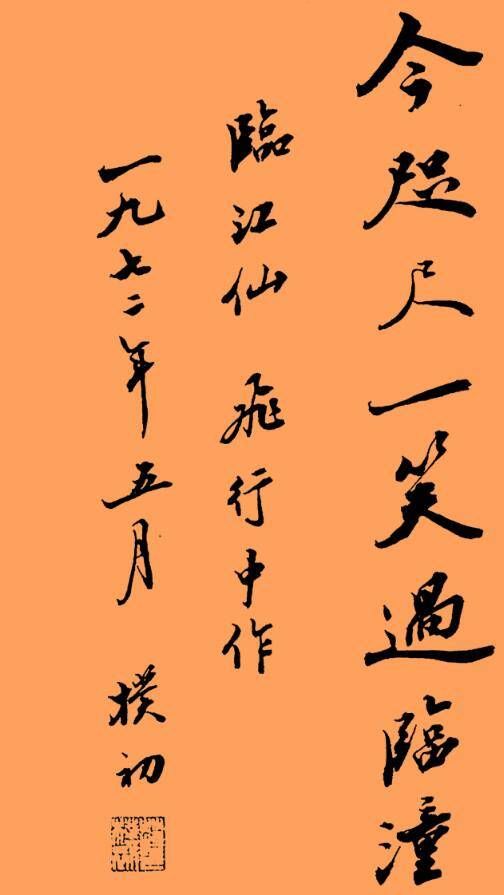 今咫尺一笑過臨潼
臨江仙 飛行中作
一九七二年五月 樸初